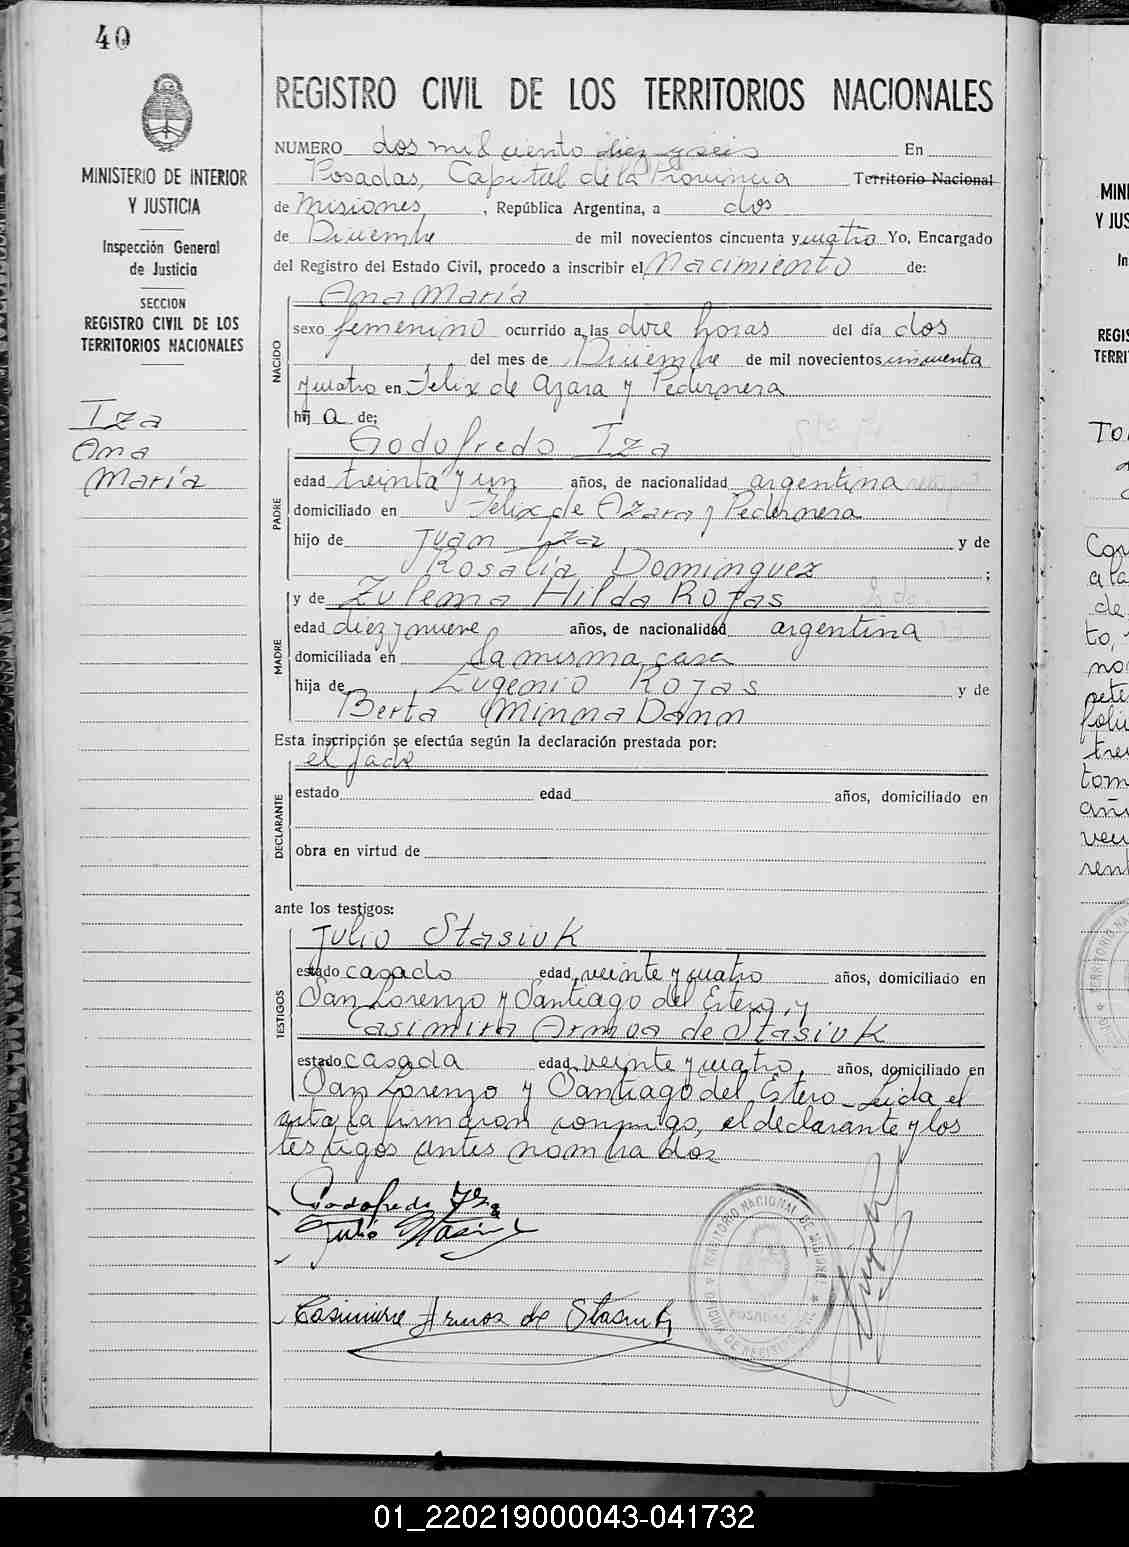 40
MINISTERIO DE INTERIOR
Y JUSTICIA
Inspección General
de Justicia
SECCION
REGISTRO CIVIL DE LOS
TERRITORIOS NACIONALES
Iza
Ana
María
REGISTRO CIVIL DE LOS TERRITORIOS NACIONALES
NUMERO dos mil ciento diez y seis En
Posadas, Capital de la Provincia Territorio Nacional
de Misiones, República Argentina, a dos
de Diciembre de mil novecientos cincuenta y cuatro Yo, Encargado
del Registro del Estado Civil, procedo a inscribir el Nacimiento de:
Ana María
NACIDO
sexo femenino ocurrido a las doce horas del día dos
del mes de Diciembre de mil novecientos cincuenta
y cuatro en Felix de Azara y Pedernera
hij a de:
Godofredo Iza
PADRE
edad treinta y un años, de nacionalidad argentina
domiciliado en Felix de Azara y Pedernera
hijo de Juan Iza y de
Rosalía Dominguez ;
y de Zulema Hilda Rojas
MADRE
edad diez y nueve años, de nacionalidad argentina
domiciliada en la misma casa
hija de Eugenio Rojas y de
Berta Minna Dann
Esta inscripción se efectúa según la declaración prestada por:
el padre
DECLARANTE
estado edad años, domiciliado en
obra en virtud de
ante los testigos:
Julio Stasiuk
TESTIGOS
estado casado edad veinte y cuatro años, domiciliado en
San Lorenzo y Santiago del Estero, y
Casimira Armoa de Stasiuk
estado casada edad veinte y cuatro, años, domiciliado en
San Lorenzo y Santiago del Estero. Leida el
acta, la firmaron conmigo, el declarante y los
testigos antes nombrados
Godofredo Iza
Julio Stasiuk
Casimira Armoa de Stasiuk
POSADAS
MINI
Y JUS
REGIS
TERRI
01_220219000043-041732